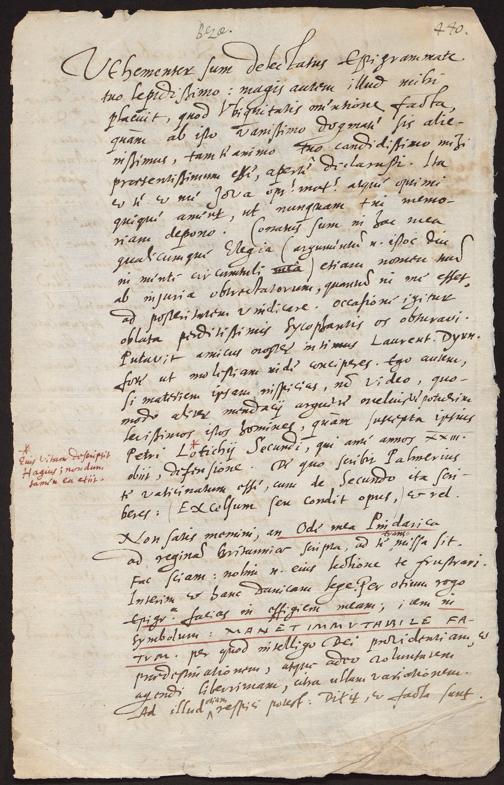 Bezæ.
440.
Vehementer sum delectatus Epigrammate
tuo lepidissimo: magis autem illud mihi
placuit, quod Vbiquitatis mentione facta,
quàm ab isto vanissimo dogmate sis alie-
nissimus, tamen animo tuo candidissimo mihi
praesentissimum esse, apertè declarasti. Ita
et te et me Ioua opt. max. atque optimi
quique ament, ut nunquam tui memo-
riam deponam. Conatus sum in hac mea
qualicumque Elegia (argumentum n. istoc diu
in mente circumtuli) etiam nomen meum
ab iniuria obtrectatorum, quantum in me esset,
ad posteritatem vindicare. Occasione igitur
oblata perditissimis sycophantis os obturavi.
Putavit amicus noster intimus Laurent. Dyrn.
fore ut molestiam inde conciperes. Ego autem,
si materiem ipsam inspicias, non video, quo-
modo
levissimos istos homines, quàm suscepta ipsius
Petri Lotichij Secundi, qui ante annos XXIII.
obijt, defensione. De quo scribis Palmerius
te vaticinatum esse, cum de Secundo ita scri
beres: Excelsum seu condit opus, et rel.
* Eius vitam descripsit
Hagius, nondum
tamen ea exijt.
Non satis memini, an Ode mea Pindarica
ad reginam Britanniae scripta, ad te missa sit.
Fac sciam: nolim n. eius lectione te frustrari.
Interim et hanc Danicam lege. Per otium rogo
Epigr.a facias in effigiem meam; item in
Symbolum: MANET IMMVTABILE FA-
TVM. per quod intelligo Dei providentiam, et
praedestinationem, atque adeo voluntatem
agendi liberrimam, citra ullam variationem.
Ad illud etiam respici potest: Dixit, et facta sunt.